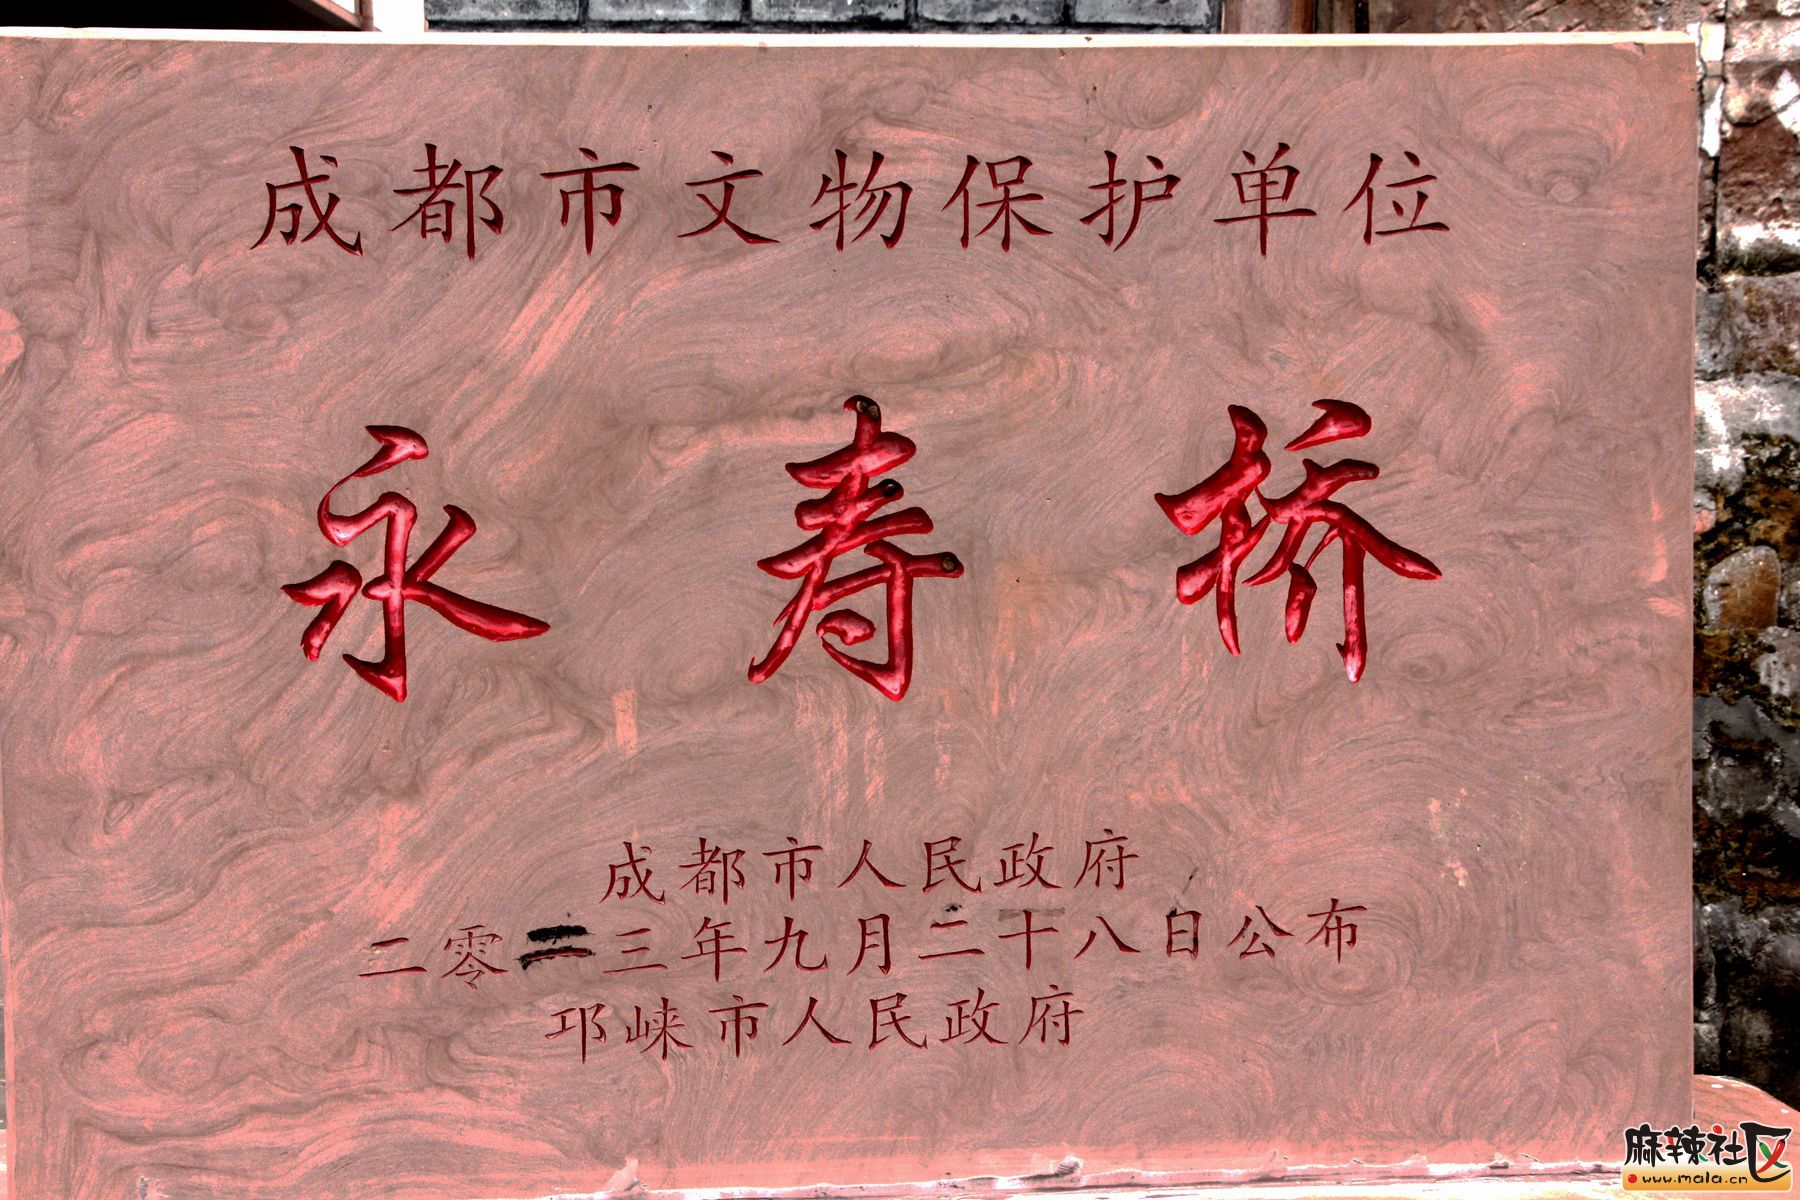 成都市文物保护单位
永寿桥
成都市人民政府
二零一三年九月二十八日公布
邛崃市人民政府
麻辣社区
www.mala.cn